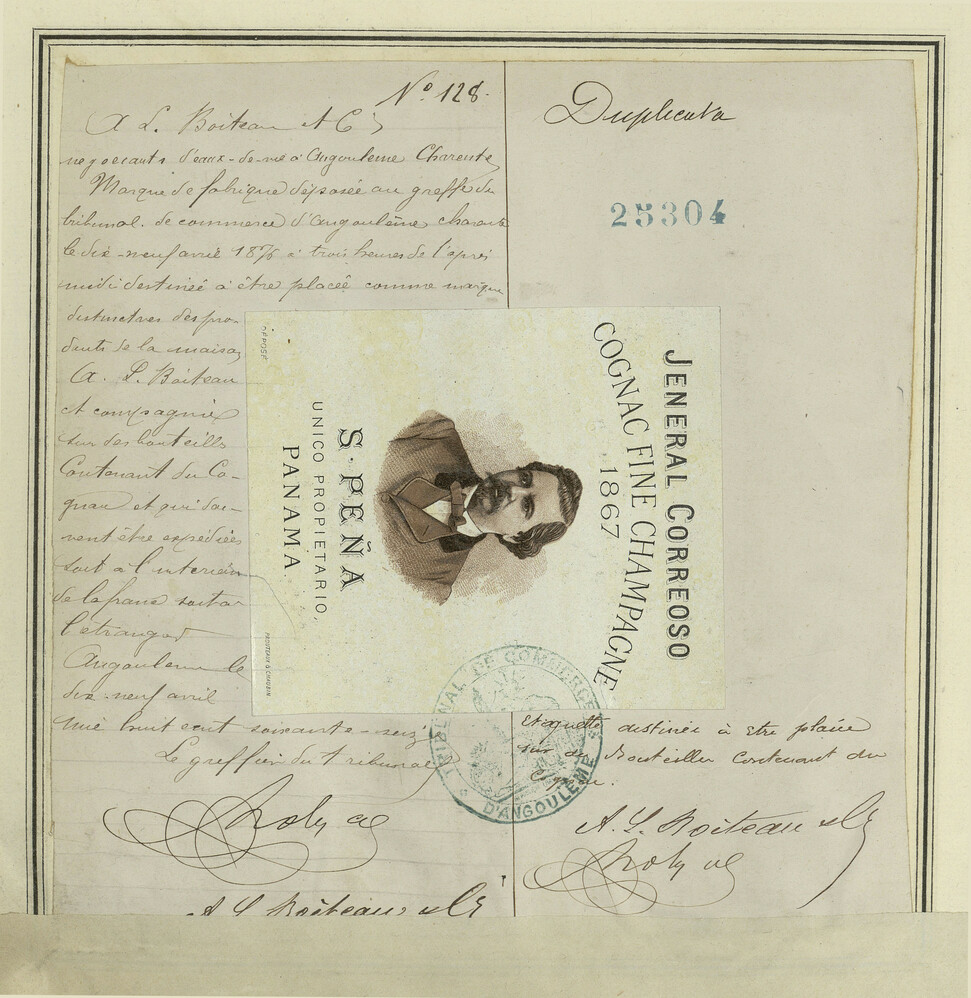 Nº 128.
A L. Boiteau et Cie
negociants d'eaux-de-vie à Angouleme Charente
Marque de fabrique déposée au greffe du
tribunal de commerce d'Angoulême charente
le dix-neuf avril 1876 à trois heures de l'après
midi destinée à être placée comme marque
distinctive des pro-
duits de la maison
A. L. Boiteau
et compagnie
sur des bouteilles
Contenant du Co-
gnac et qui doi-
vent être expédiées
soit à l'interieur
de la france soit à
l'etranger
Angouleme le
dix-neuf avril
mil huit cent soixante-seize
Le greffier du tribunal
A L Boiteau & Cie
Duplicata
25304
JENERAL CORREOSO
COGNAC FINE CHAMPAGNE
1867
S. PEÑA
UNICO PROPIETARIO,
PANAMA
DÉPOSÉ
TRIBUNAL DE COMMERCE
D'ANGOULÊME
Etiquette destinée à etre placée
sur des Bouteilles Contenant du
Cognac.
A. L. Boiteau & Cie